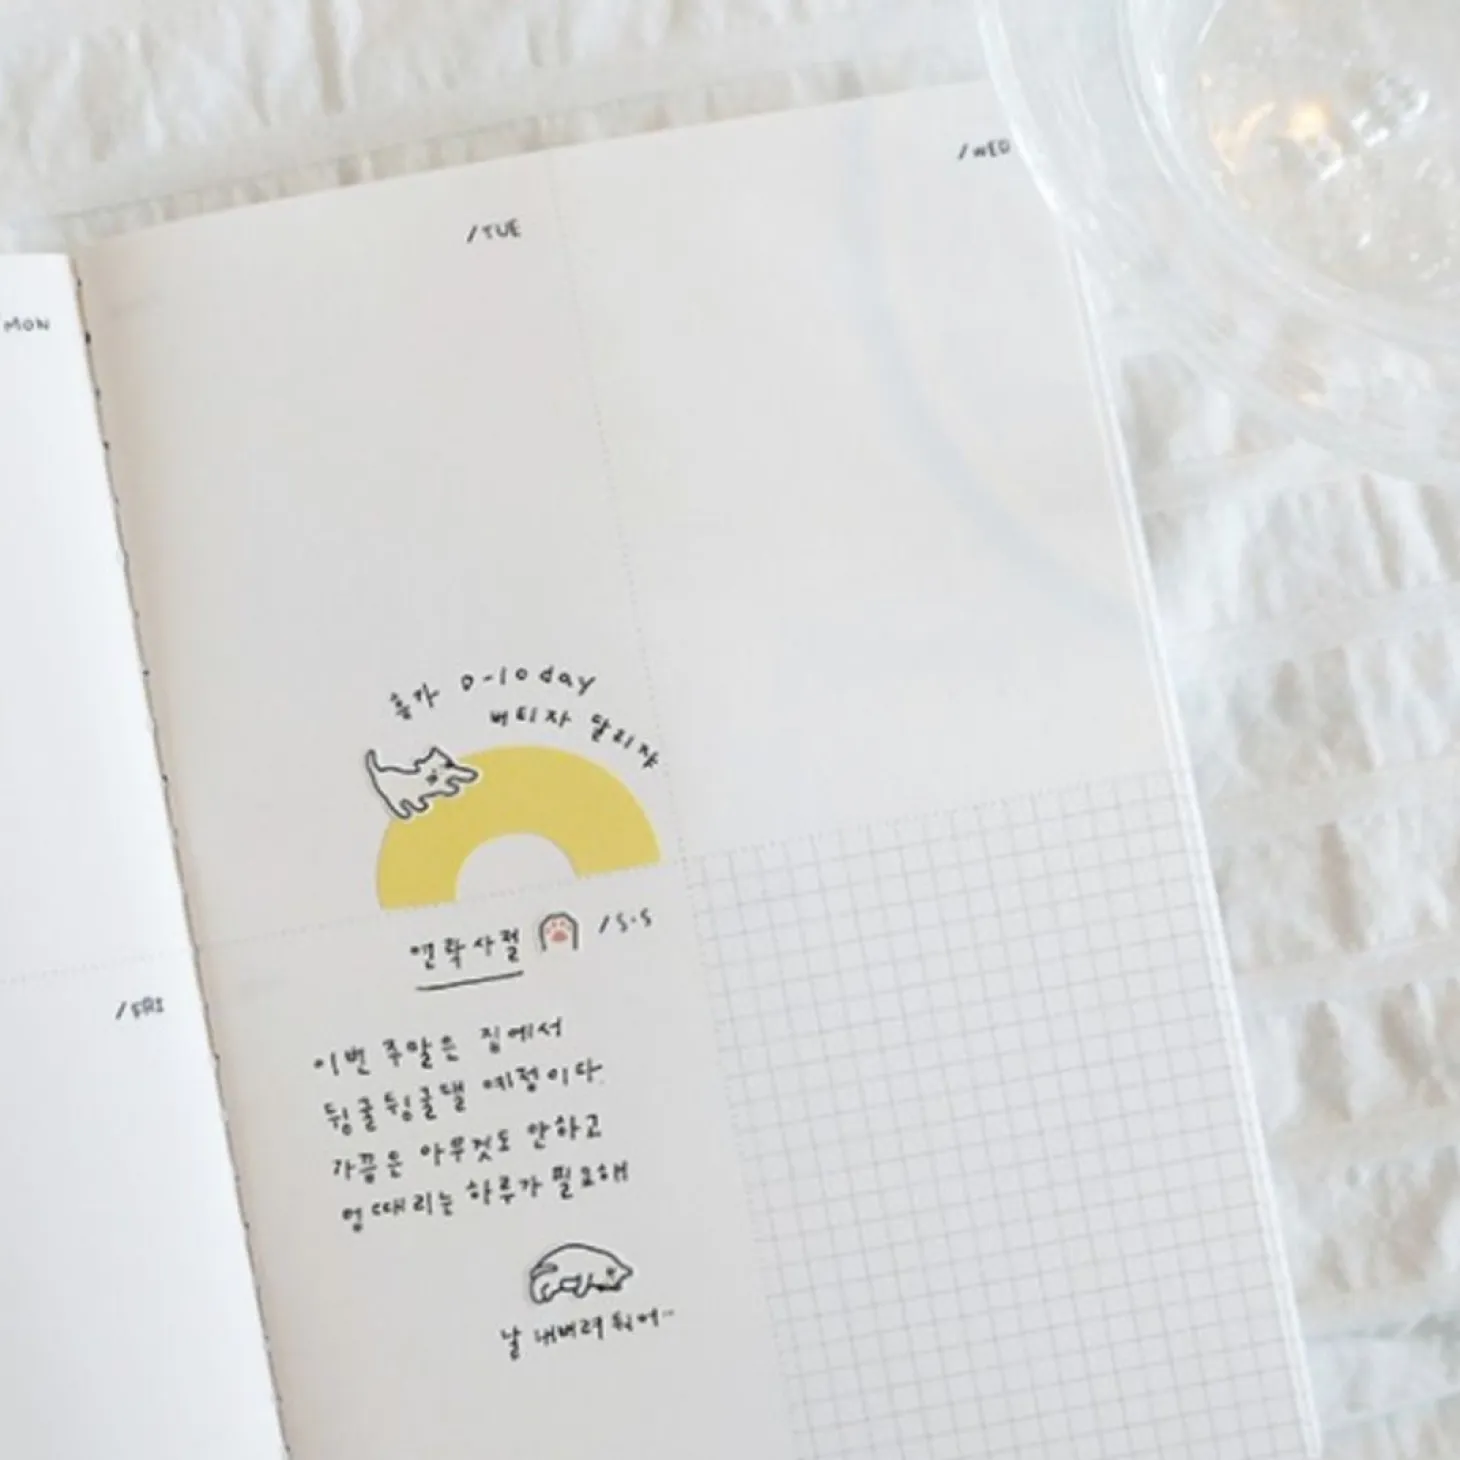 MON
/TUE
/WED
휴가 D-10day
버티자 달리자
/FRI
연락사절
/S.S
이번 주말은 집에서
뒹굴뒹굴댈 예정이다.
가끔은 아무것도 안하고
멍때리는 하루가 필요해
날 내버려 둬어..